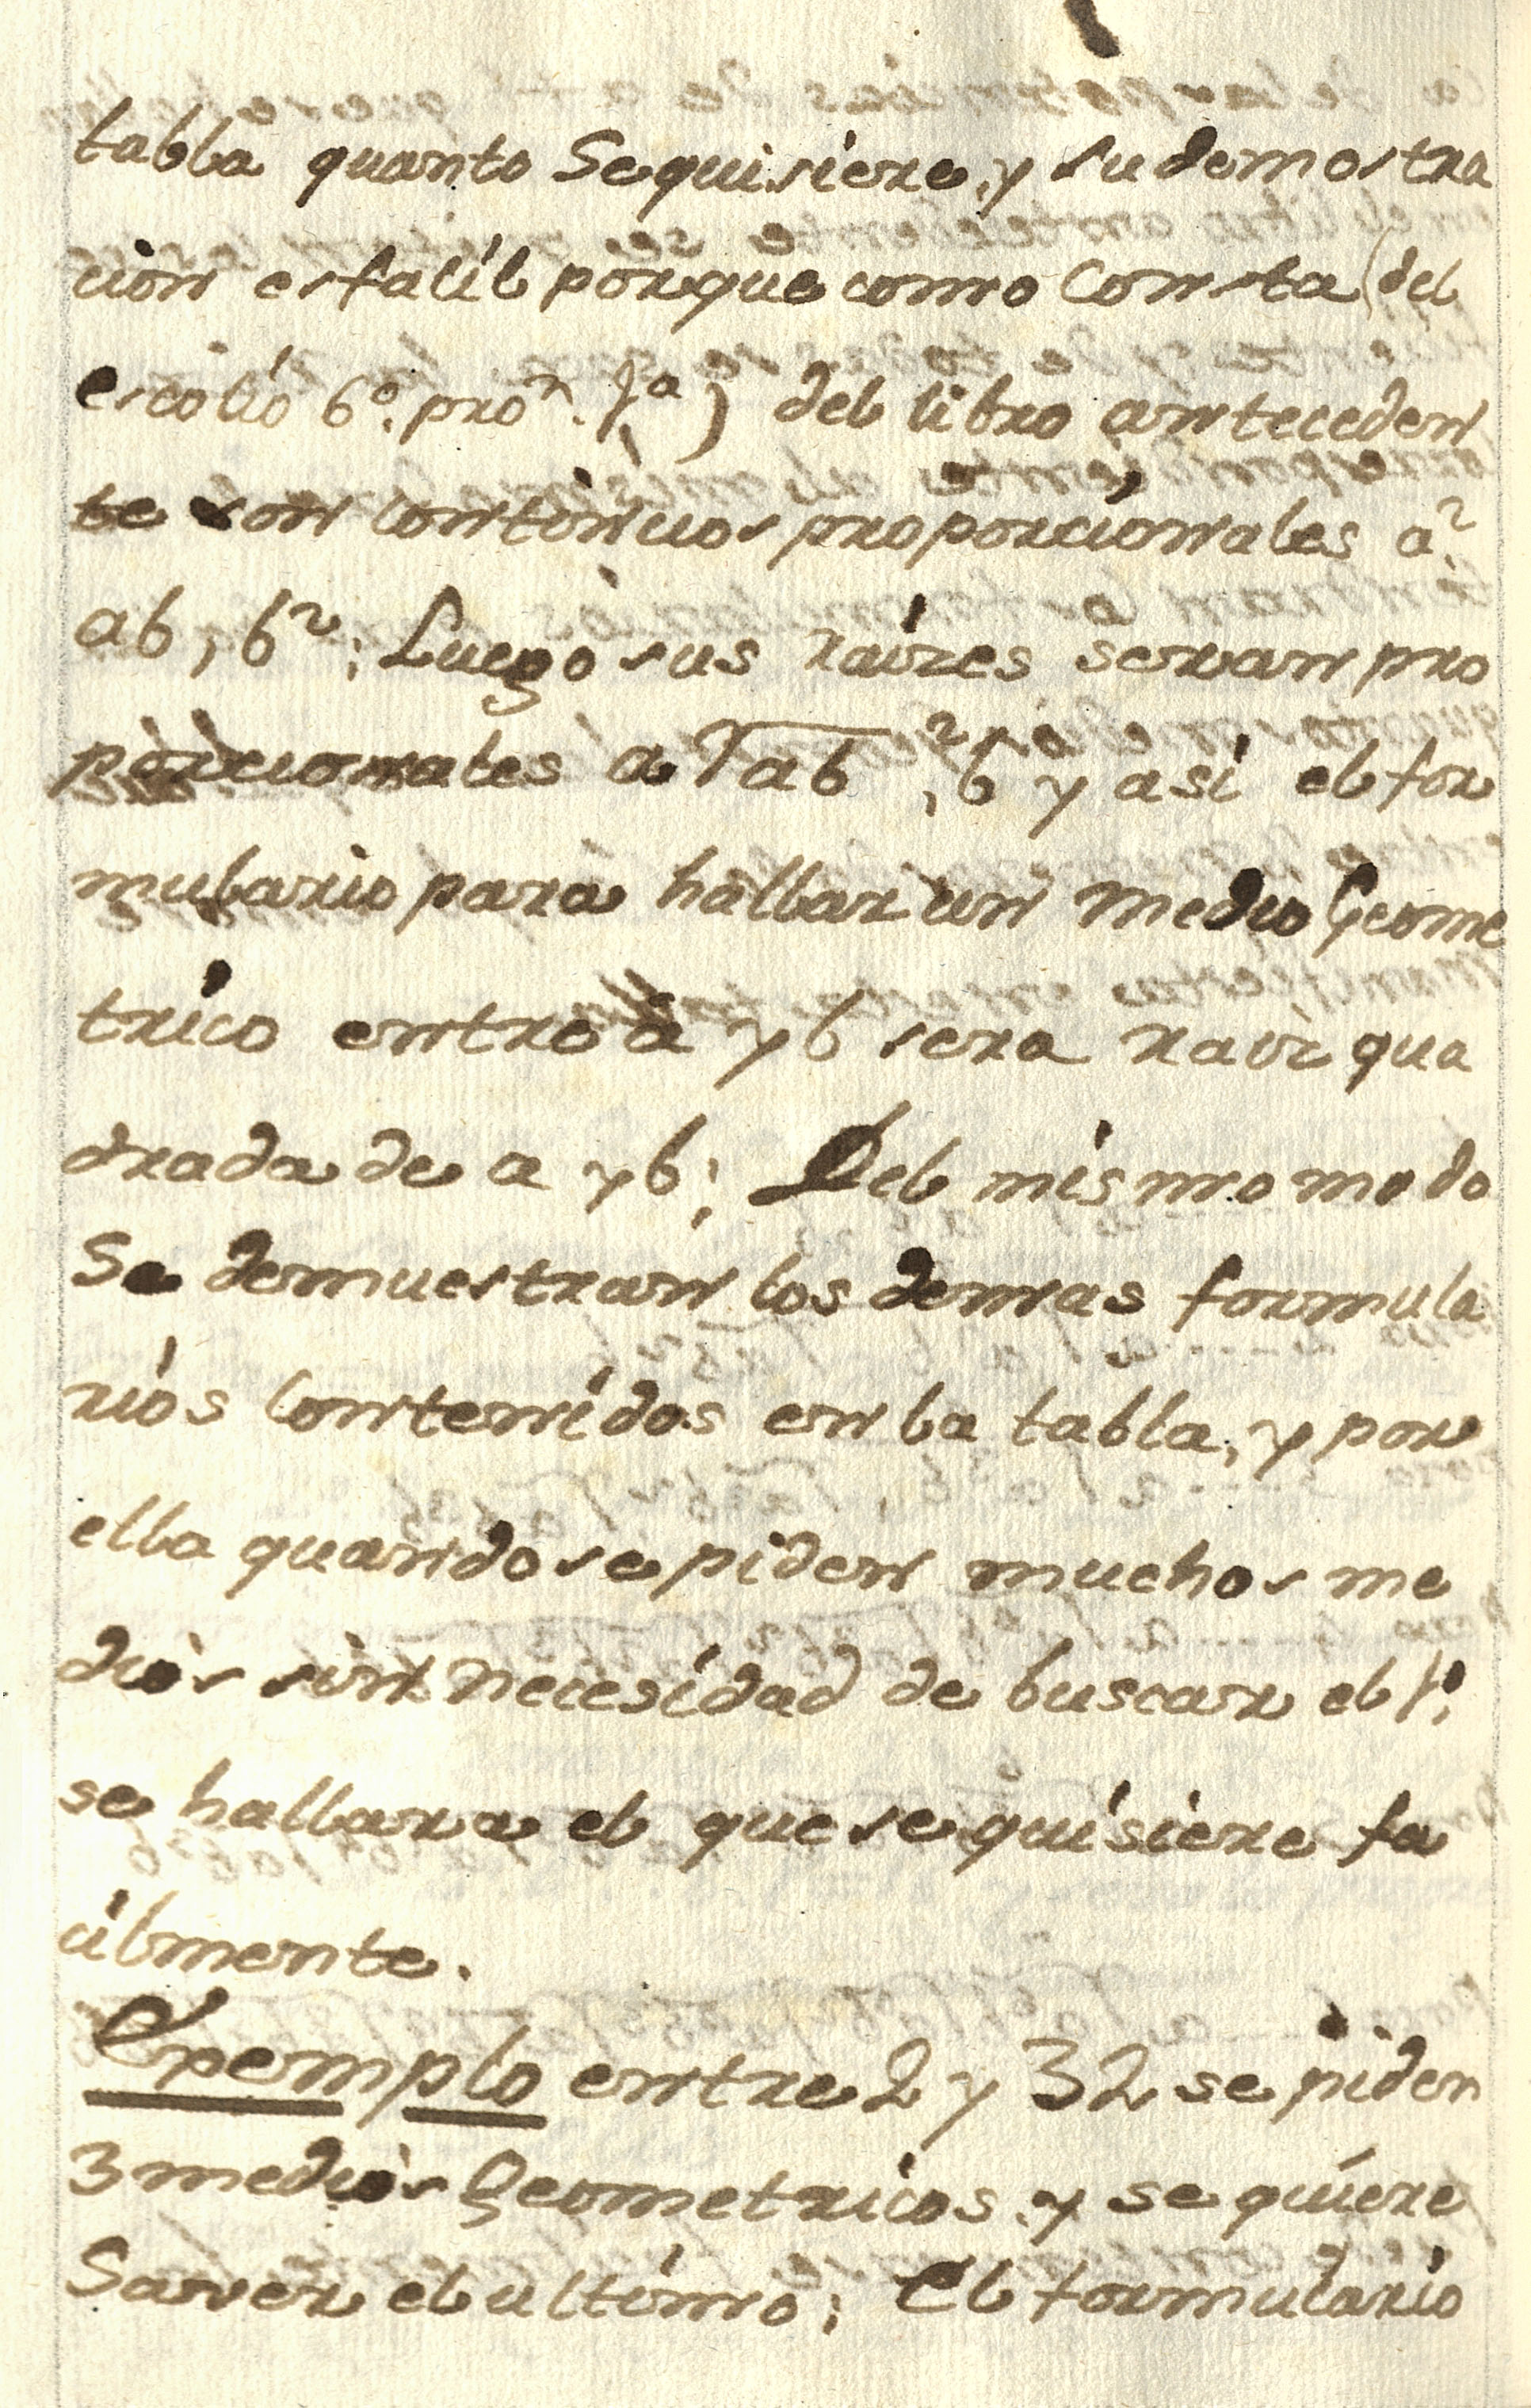 tabla quanto Se quisiere, y su demostra
cion es facil porque como Consta (del
escolio 6º. proⁿ. 1ª) del libro anteceden
te son continuos proporcionales a².
ab, b²; Luego sus raizes seran pro
porcionales a √ab, b y asi el for
mulario para hallar un medio Geome
trico entre a y b sera raiz qua
drada de a y b; Del mismo modo
Se demuestran los demas formula
rios Contenidos en la tabla, y por
ella quando se piden muchos me
dios sin necesidad de buscar el 1º.
se hallara el que se quisiere fa
cilmente.
Exemplo entre 2 y 32 se piden
3 medios Geometricos, y se quiere
Saver el ultimo; El formulario